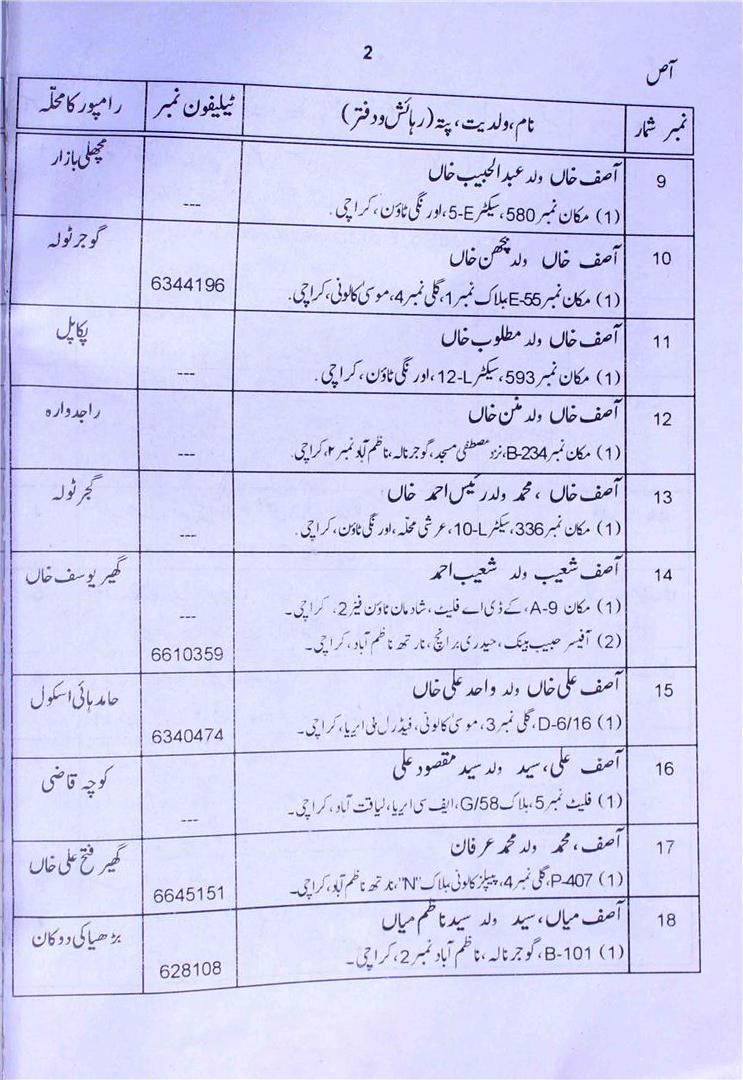 2
آص
نمبر شمار
نام، ولدیت، پتہ (رہائش و دفتر)
ٹیلیفون نمبر
رامپور کا محلّہ
9
آصف خاں ولد عبدالحبیب خاں
مچھلی بازار
(1) مکان نمبر 580، سیکٹر 5-E، اورنگی ٹاؤن، کراچی.
---
10
آصف خاں ولد چھن خاں
گوجر ٹولہ
(1) مکان نمبر E-55 بلاک نمبر 1، گلی نمبر 4، موسیٰ کالونی، کراچی.
6344196
11
آصف خاں ولد مطلوب خاں
پکاپل
(1) مکان نمبر 593، سیکٹر 12-L، اورنگی ٹاؤن، کراچی.
---
12
آصف خاں ولد منن خاں
راجدوارہ
(1) مکان نمبر B-234، نزد مصطفیٰ مسجد، گوجر نالہ، ناظم آباد نمبر ۲، کراچی.
---
13
آصف خاں، محمد ولد رئیس احمد خاں
گجر ٹولہ
(1) مکان نمبر 336، سیکٹر 10-L، عرشی محلّہ، اورنگی ٹاؤن، کراچی.
---
14
آصف شعیب ولد شعیب احمد
گھیر یوسف خاں
(1) مکان A-9، کے ڈی اے فلیٹ، شادمان ٹاؤن فیز 2، کراچی۔
---
(2) آفیسر حبیب بینک، حیدری برانچ، نارتھ ناظم آباد، کراچی۔
6610359
15
آصف علی خاں ولد واحد علی خاں
حامد ہائی اسکول
(1) D-6/16، گلی نمبر 3، موسیٰ کالونی، فیڈرل بی ایریا، کراچی۔
6340474
16
آصف علی، سید ولد سید مقصود علی
کوچہ قاضی
(1) فلیٹ نمبر 5، بلاک G/58، ایف سی ایریا، لیاقت آباد، کراچی۔
---
17
آصف، محمد ولد محمد عرفان
گھیر فتح علی خاں
(1) P-407، گلی نمبر 4، پیپلز کالونی بلاک "N"، نارتھ ناظم آباد، کراچی۔
6645151
18
آصف میاں، سید ولد سید ناظم میاں
بڑھیا کی دوکان
(1) B-101، گوجر نالہ، ناظم آباد نمبر 2، کراچی۔
628108